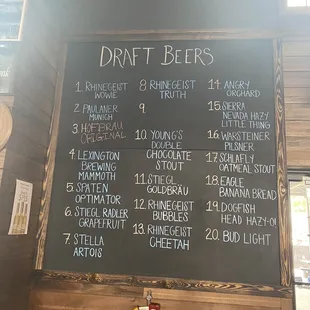 DRAFT BEERS
1. RHINEGEIST
WOWIE
2. PAULANER
MUNICH
3. HOFFBRAU
ORIGINAL
4. LEXINGTON
BREWING
MAMMOTH
5. SPATEN
OPTIMATOR
6. STIEGL RADLER
GRAPEFRUIT
7. STELLA
ARTOIS
8 RHINEGEIST
TRUTH
9.
10. YOUNG'S
DOUBLE
CHOCOLATE
STOUT
11. STIEGL
GOLDBRÄU
12. RHINEGEIST
BUBBLES
13. RHINEGEIST
CHEETAH
14. ANGRY
ORCHARD
15. SIERRA
NEVADA HAZY
LITTLE THING
16. WARSTEINER
PILSNER
17. SCHLAFLY
OATMEAL STOUT
18. EAGLE
BANANA BREAD
19. DOGFISH
HEAD HAZY-O!
20. BUD LIGHT